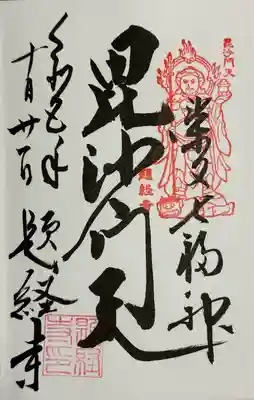 毘沙門天
柴又七福神
題経寺
毘沙門天
令和五年
十月廿一日
題経寺
題経
寺印